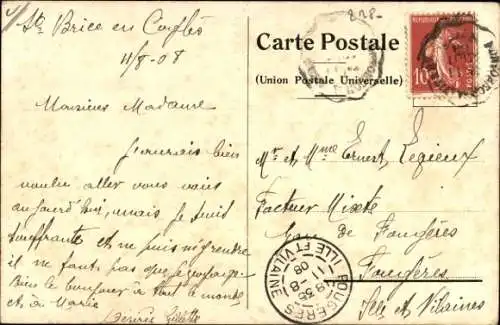 St Brice en Coglès
11/8-08
Monsieur Madame
J'aurais bien
voulu aller vous voir
aujourd'hui, mais je suis
souffrante et ne puis m'y rendre
il ne faut pas que je voyage.
Bien le bonjour à tout le monde
et à Marie
Désirée
828
Carte Postale
(Union Postale Universelle)
10
POSTES
Mr et Mme Ernest Legieux
Facteur Mixte
Gare de Fougères
Fougères
Ille et Vilaine
FOUGERES
ILLE ET VILAINE
11-8
08